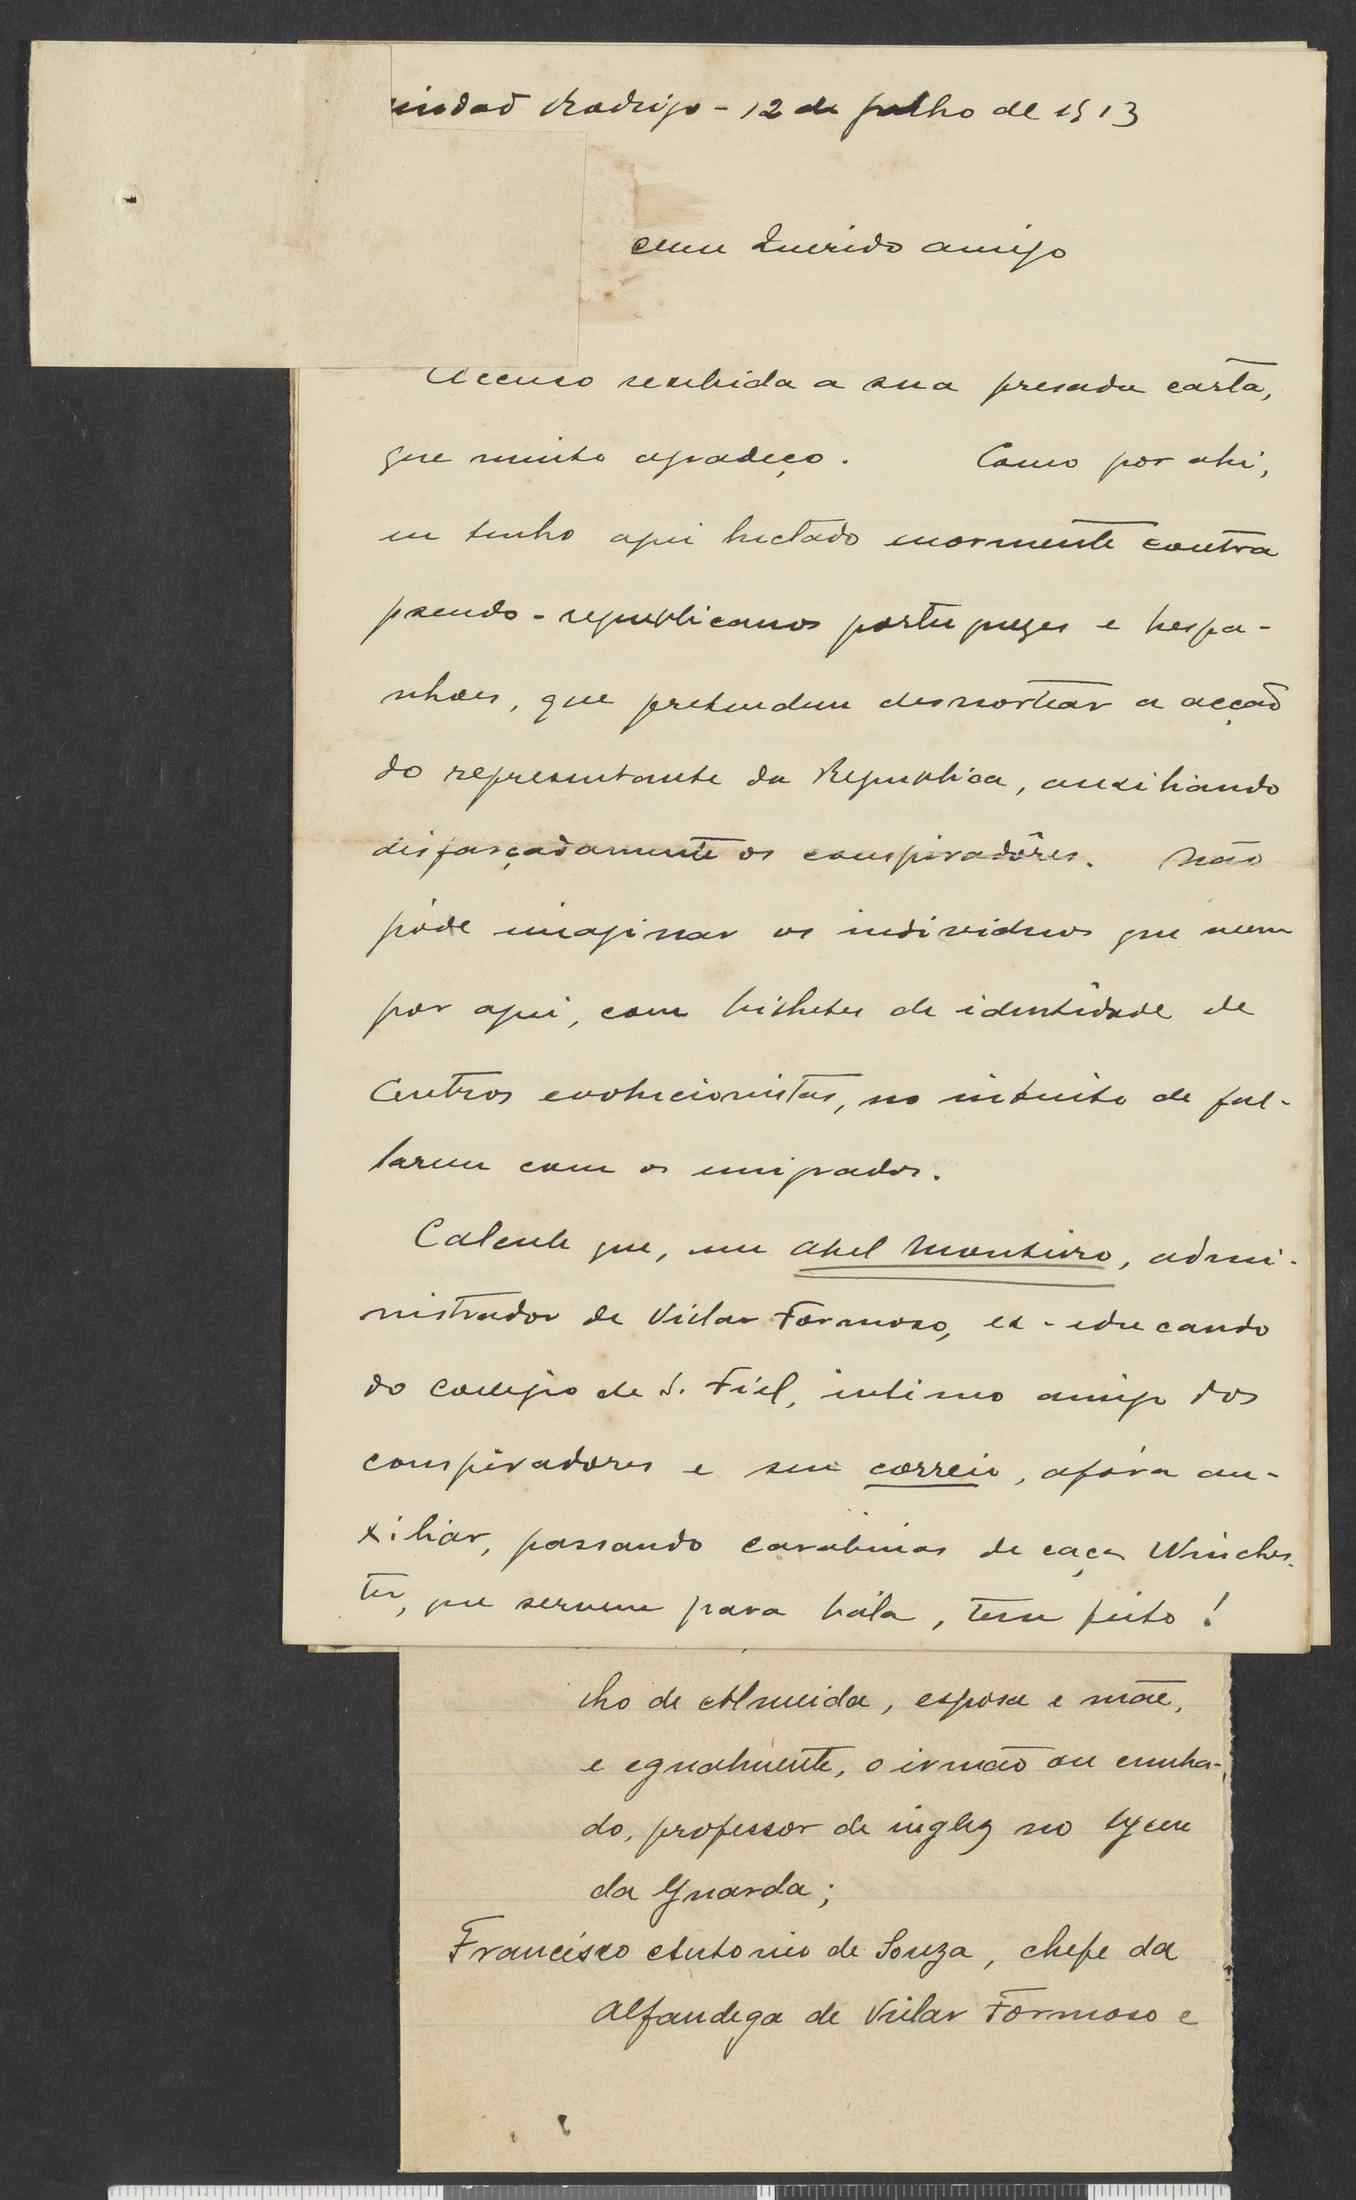 iudad Rodrigo - 12 de julho de 1913
Meu Querido amigo
Accuso recebida a sua presada carta,
que muito agradeço. Como por ahi,
eu tenho aqui luctado enormente contra
pseudo-republicanos portuguezes e hespa-
nhoes, que pretendem desnortear a acção
do representante da Republica, auxiliando
disfarçadamente os conspiradôres. Não
póde imaginar os individuos que veem
por aqui, com bilhetes de identidade de
Centros evolucionistas, no intuito de fal-
larem com os emigrados.
Calcule que, um Abel Monteiro, admi-
nistrador de Villar Formoso, ex-educando
do collegio de S. Fiel, intimo amigo dos
conspiradores e seu correio, afóra au-
xiliar, passando carabinas de caça Winches-
ter, que servem para bála, tem feito!
lho de Almeida, esposa e mãe,
e egualmente, o irmão ou cunha-
do, professor de inglez no lyceu
da Guarda;
Francisco Antonio de Souza, chefe da
Alfandega de Villar Formoso e